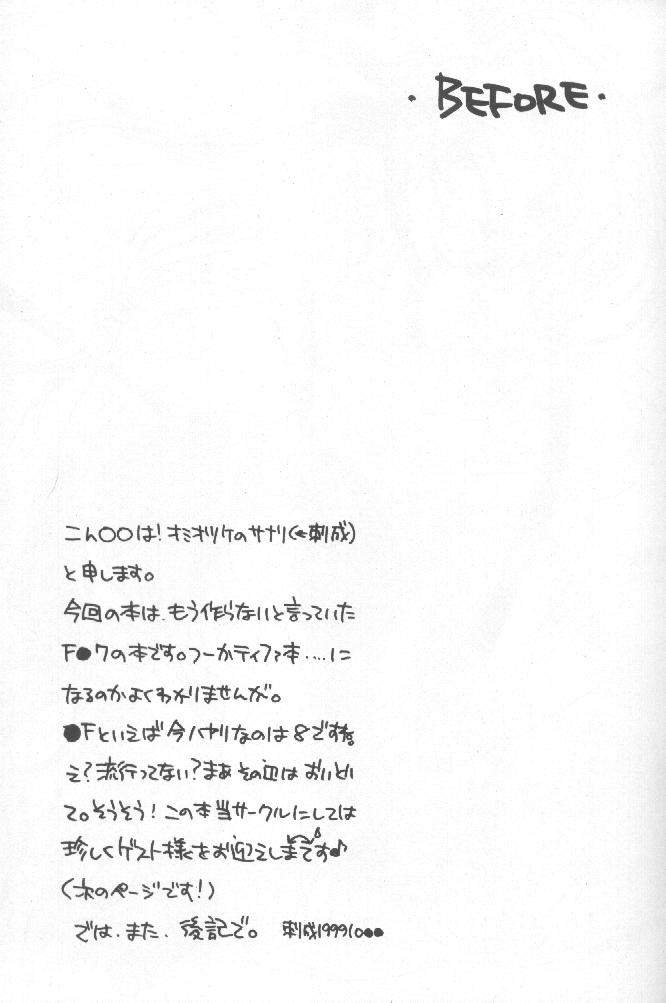 ・BEFORE・
こん〇〇は!オミオツケのサナリ(←刺成)
と申します。
今回の本は、もう作らないと言っていた
F●7の本です。つーかティファ本....に
なるのかよくわかりませんが。
●Fといえば今ハヤリなのは8ですね。
え?流行ってない?まぁその辺はおいとい
て。そうそう!この本当サークルにしては
珍しくゲスト様をお迎えしまてす♪
(次のページです!)
では、また、後記で。 刺成199910●●